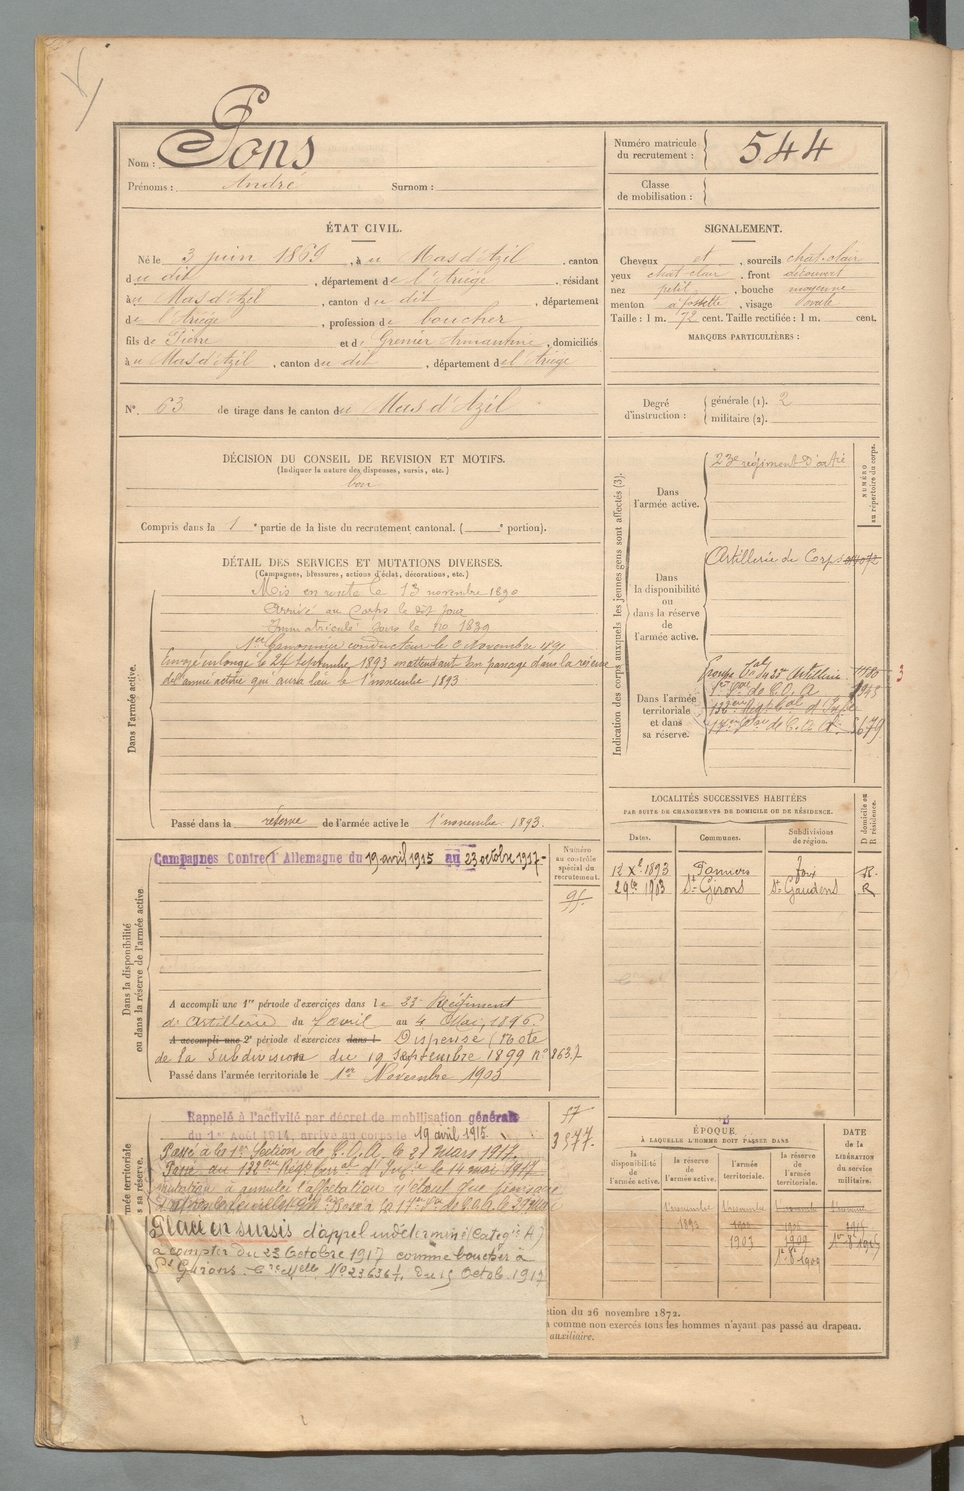 Nom : Pons
Prénoms : André Surnom :
Numéro matricule du recrutement : 544
Classe de mobilisation :
ÉTAT CIVIL.
Né le 3 juin 1869, à u Mas d'Azil, canton
du dit, département de l'Ariège, résidant
à u Mas d'Azil, canton du dit, département
de l'Ariège, profession de boucher
fils de Pierre et de Grenier Armantine, domiciliés
à u Mas d'Azil, canton du dit, département de l'Ariège
N° 63 de tirage dans le canton du Mas d'Azil
SIGNALEMENT.
Cheveux et, sourcils chat. clair
yeux chat clair, front découvert
nez petit, bouche moyenne
menton à fossette, visage Ovale
Taille : 1 m. 72 cent. Taille rectifiée : 1 m. cent.
MARQUES PARTICULIÈRES :
Degré d'instruction : générale (1). 2
militaire (2).
DÉCISION DU CONSEIL DE REVISION ET MOTIFS.
(Indiquer la nature des dispenses, sursis, etc.)
bon
Compris dans la 1e partie de la liste du recrutement cantonal. ( e portion).
DÉTAIL DES SERVICES ET MUTATIONS DIVERSES.
(Campagnes, blessures, actions d'éclat, décorations, etc.)
Dans l'armée active.
Mis en route le 13 novembre 1890
Arrivé au Corps le dit jour
Immatriculé sous le no 1839
1er Canonnier conducteur le novembre
Envoyé en congé le 24 Septembre 1893 en attendant son passage dans la réserve
de l'armée active qui aura lieu le 1er novembre 1893
Passé dans la réserve de l'armée active le 1er novembre 1893.
Indication des corps auxquels les jeunes gens sont affectés (3).
NUMÉRO au répertoire du corps.
Dans l'armée active.
23e régiment d'artie
Dans la disponibilité ou dans la réserve de l'armée active.
Artillerie du Corps
Dans l'armée territoriale et dans sa réserve.
Groupe tal du 23e Artillerie
de C.O.A
d'Infie
de C.O.A. 5679
3
LOCALITÉS SUCCESSIVES HABITÉES
PAR SUITE DE CHANGEMENTS DE DOMICILE OU DE RÉSIDENCE.
Dates. Communes. Subdivisions de région. D domicile ou R résidence.
12 Xe 1893 Pamiers Foix R.
1903 St Girons St Gaudens R
Dans la disponibilité ou dans la réserve de l'armée active
Numéro au contrôle spécial du recrutement.
Campagnes Contre l'Allemagne du 19 avril 1915 au 23 octobre 1917.-
A accompli une 1re période d'exercices dans le 23e Régiment
d'Artillerie du 7 avril au 4 Mai 1896.
A accompli une 2e période d'exercices dans l Dispensé (Note
de la Subdivision du 19 Septembre 1899 no 8637
Passé dans l'armée territoriale le 1er Novembre 1903
Rappelé à l'activité par décret de mobilisation générale
du 1er Août 1914, arrivé au corps le 19 avril 1915.
3877.
Passé à la 1re Section de C.O.A. le 21 mars 1917.
Passé au 138eme Régt d'Infie le 14 mai 1917
mutation à annuler l'affectation n'étant que
Placé en sursis d'appel indéterminé (Catégie A)
à compter du 23 Octobre 1917 comme boucher à
St Girons. No 236361 du 15 Octob. 1917
ÉPOQUE
À LAQUELLE L'HOMME DOIT PASSER DANS
la disponibilité de l'armée active.
la réserve de l'armée active.
l'armée territoriale.
la réserve de l'armée territoriale.
DATE de la LIBÉRATION du service militaire.
1er novembre 1893
1903
1909
ction du 26 novembre 1872.
comme non exercés tous les hommes n'ayant pas passé au drapeau.
auxiliaire.